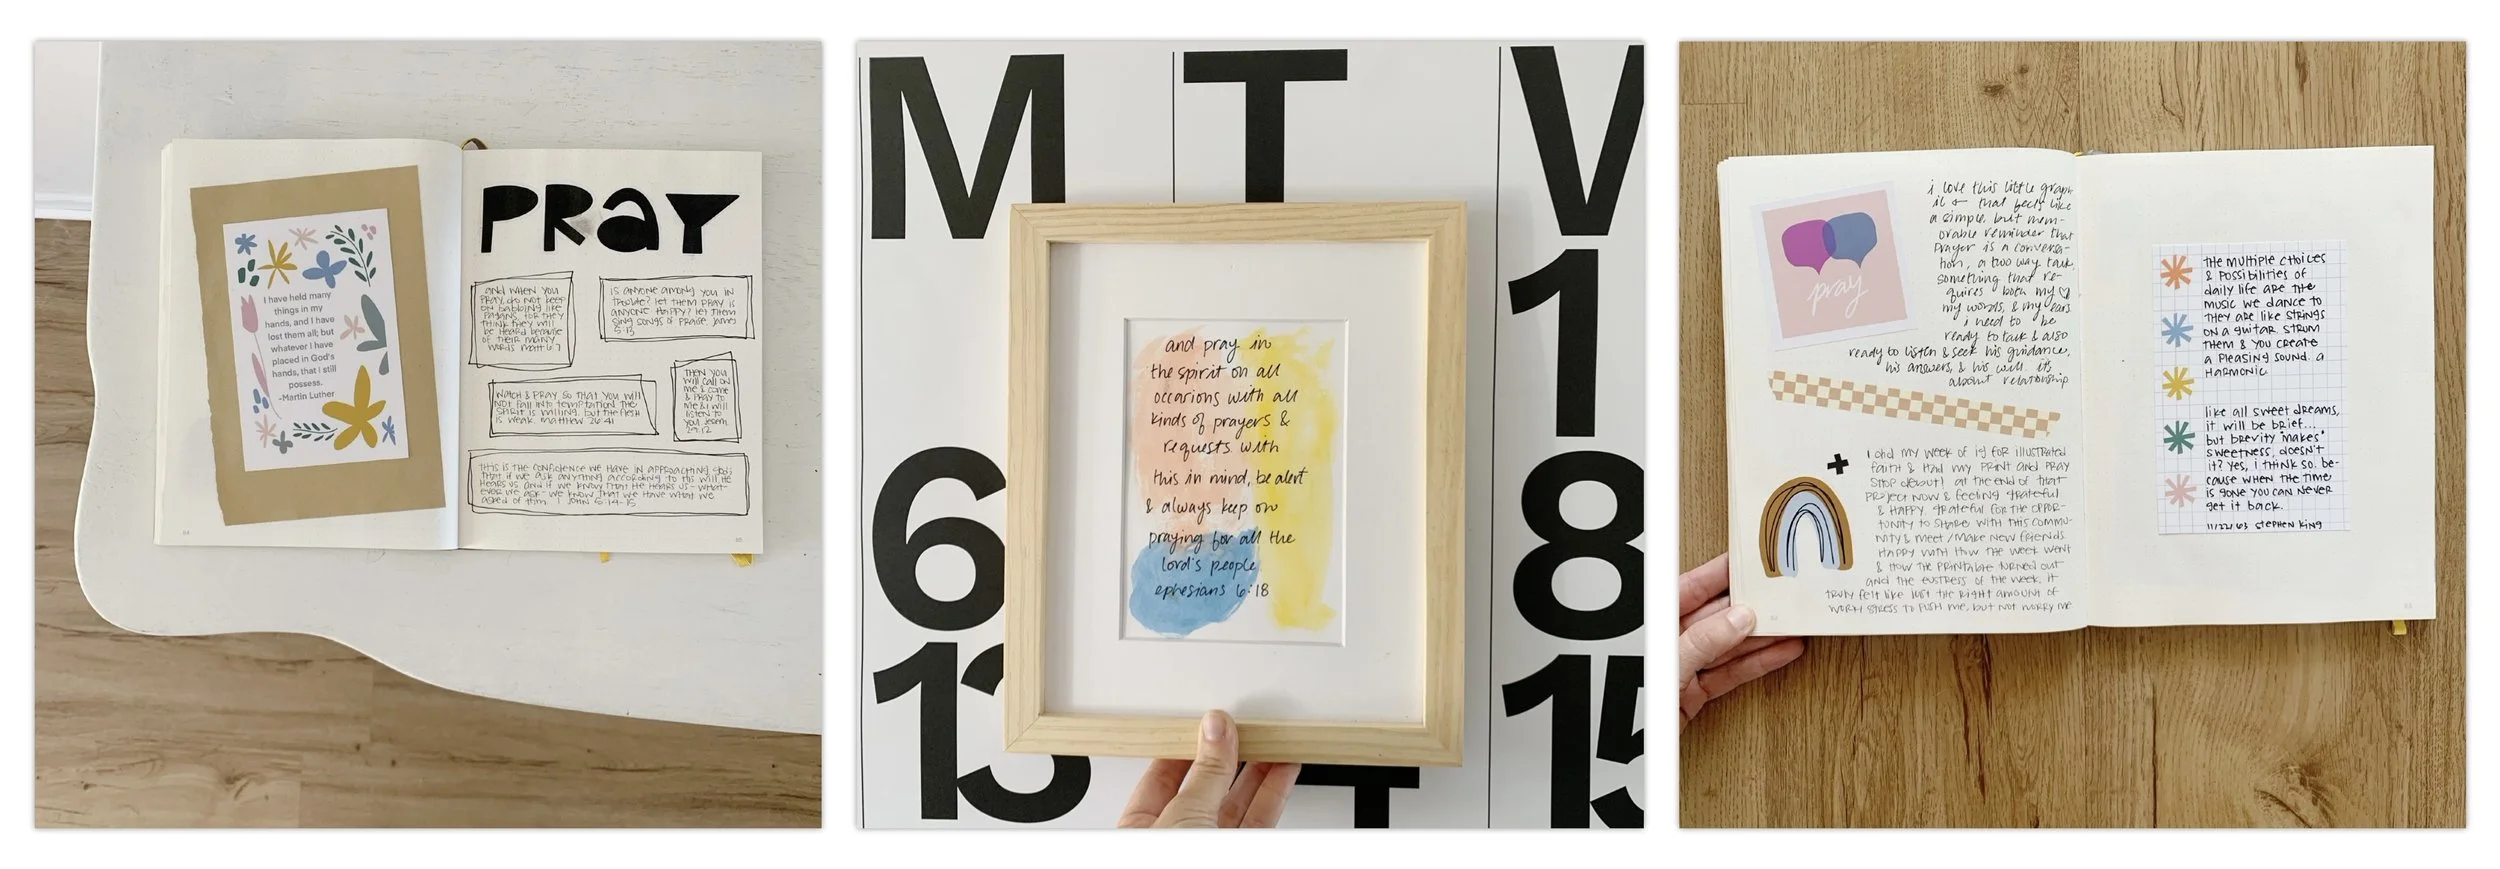 I have held many
things in my
hands, and I have
lost them all; but
whatever I have
placed in God's
hands, that I still
possess.
-Martin Luther
PRaY
and when you
pray, do not keep
on babbling like
pagans, for they
think they will
be heard because
of their many
words matt 6:7
is anyone among you in
trouble? let them pray is
anyone happy? let them
sing songs of praise. james
5:13
watch & pray so that you will
not fall into temptation the
spirit is willing, but the flesh
is weak. matthew 26:41
then you
will call on
me & come
& pray to
me & i will
listen to
you. jerem
29:12
this is the confidence we have in approaching god:
that if we ask anything according to his will he
hears us and if we know that he hears us - what-
ever we ask - we know that we have what we
asked of him. 1 john 5:14-15
M T W
1
6 8
13 15
T
and pray in
the spirit on all
occasions with all
kinds of prayers &
requests with
this in mind, be alert
& always keep on
praying for all the
lord's people
ephesians 6:18
pray
i love this little graph
ic & that feels like
a simple, but mem-
orable reminder that
prayer is a conversa-
tion, a two way talk,
something that re-
quires both my ♡
my words, & my ears.
i need to be
ready to talk & also
ready to listen & seek his guidance,
his answers, & his will. it's
about relationship
I did my week of ig for illustrated
faith & had my print and pray
shop debut! at the end of that
project now & feeling grateful
& happy. grateful for the oppor-
tunity to share with this commu-
nity & meet / make new friends.
happy with how the week went
& how the printable turned out
and the eustress of the week. it
truly felt like just the right amount of
work stress to push me, but not worry me
the multiple choices
& possibilities of
daily life are the
music we dance to
they are like strings
on a guitar. strum
them & you create
a pleasing sound. a
harmonic.
like all sweet dreams,
it will be brief...
but brevity "makes"
sweetness, doesn't
it? yes, i think so. be-
cause when the time
is gone you can never
get it back.
11/22/63 stephen king